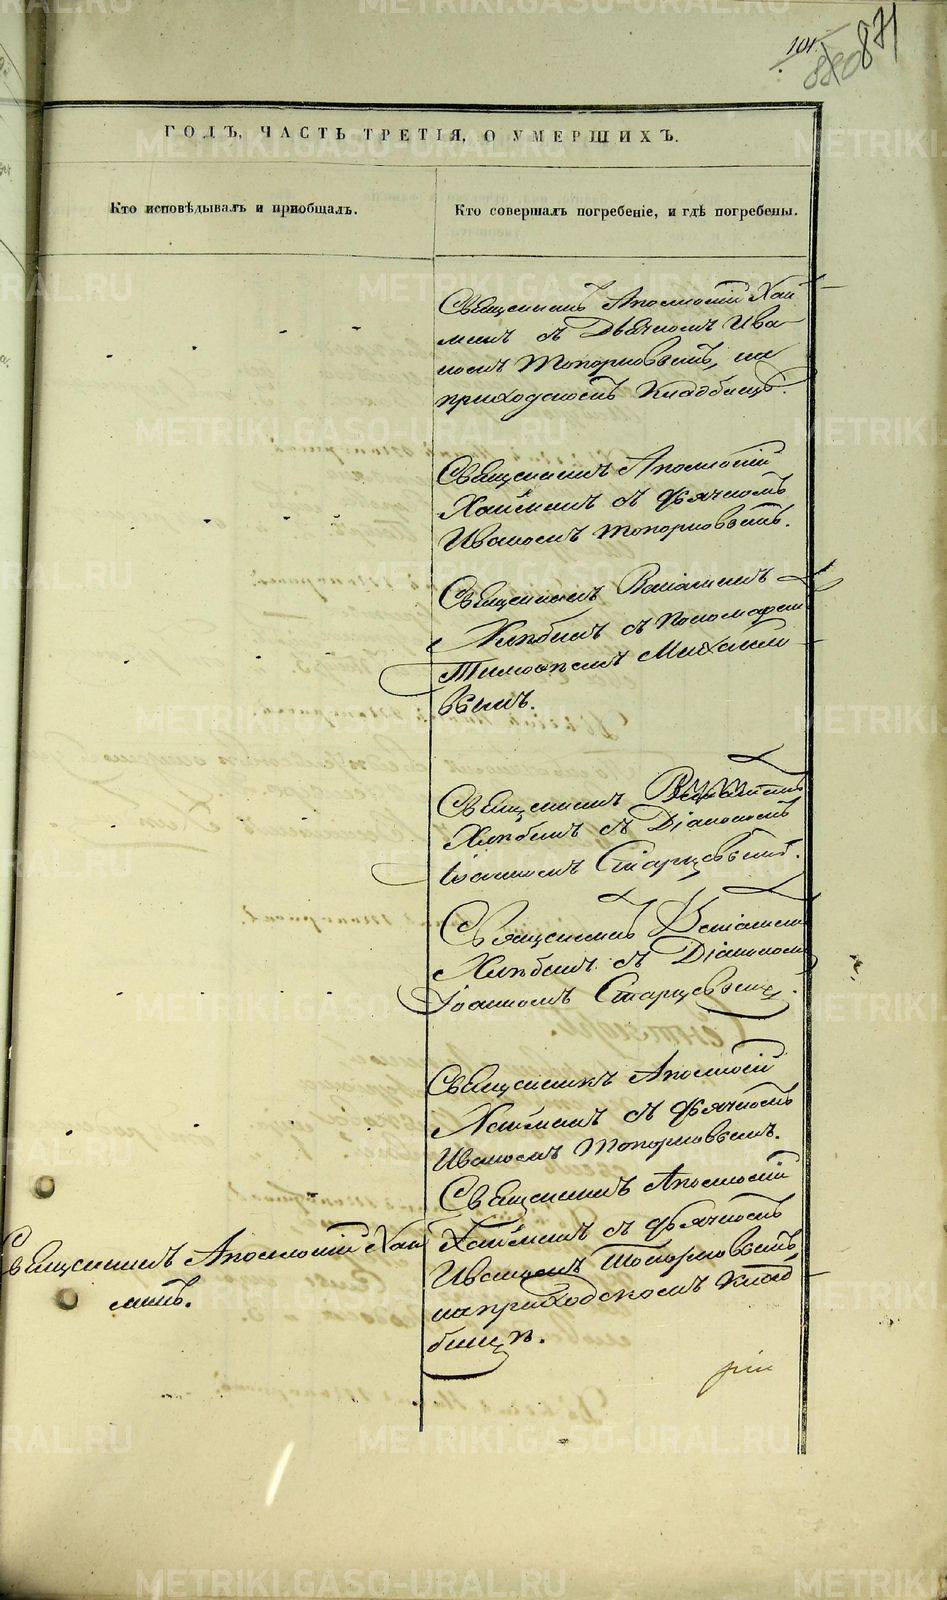 101.
880 871
ГОДЪ, ЧАСТЬ ТРЕТІЯ, О УМЕРШИХЪ.
Кто исповѣдывалъ и пріобщалъ.
Кто совершалъ погребеніе, и гдѣ погребены.
Священникъ Аполлоній Хай
минъ съ Дьячкомъ Ива
номъ Топорковымъ, на
приходскомъ Кладбищѣ.
Священникъ Аполлоній
Хайминъ съ Дьячкомъ
Иваномъ Топорковымъ.
Священникъ Веніаминъ
Хлѣбинъ съ Пономаремъ
Тимоѳеемъ Михайло
вымъ.
Священникъ
Хлѣбинъ съ Діакономъ
Іоанномъ Старцевымъ.
Священникъ Веніаминъ
Хлѣбинъ съ Діакономъ
Іоанномъ Старцевымъ.
Священникъ Аполлоній
Хайминъ съ Дьячкомъ
Иваномъ Топорковымъ.
Священникъ Аполлоній Хай
минъ.
Священникъ Аполлоній
Хайминъ съ Дьячкомъ
Иваномъ Топорковымъ
на приходскомъ Клад
бищѣ.
METRIKI.GASO-URAL.RU